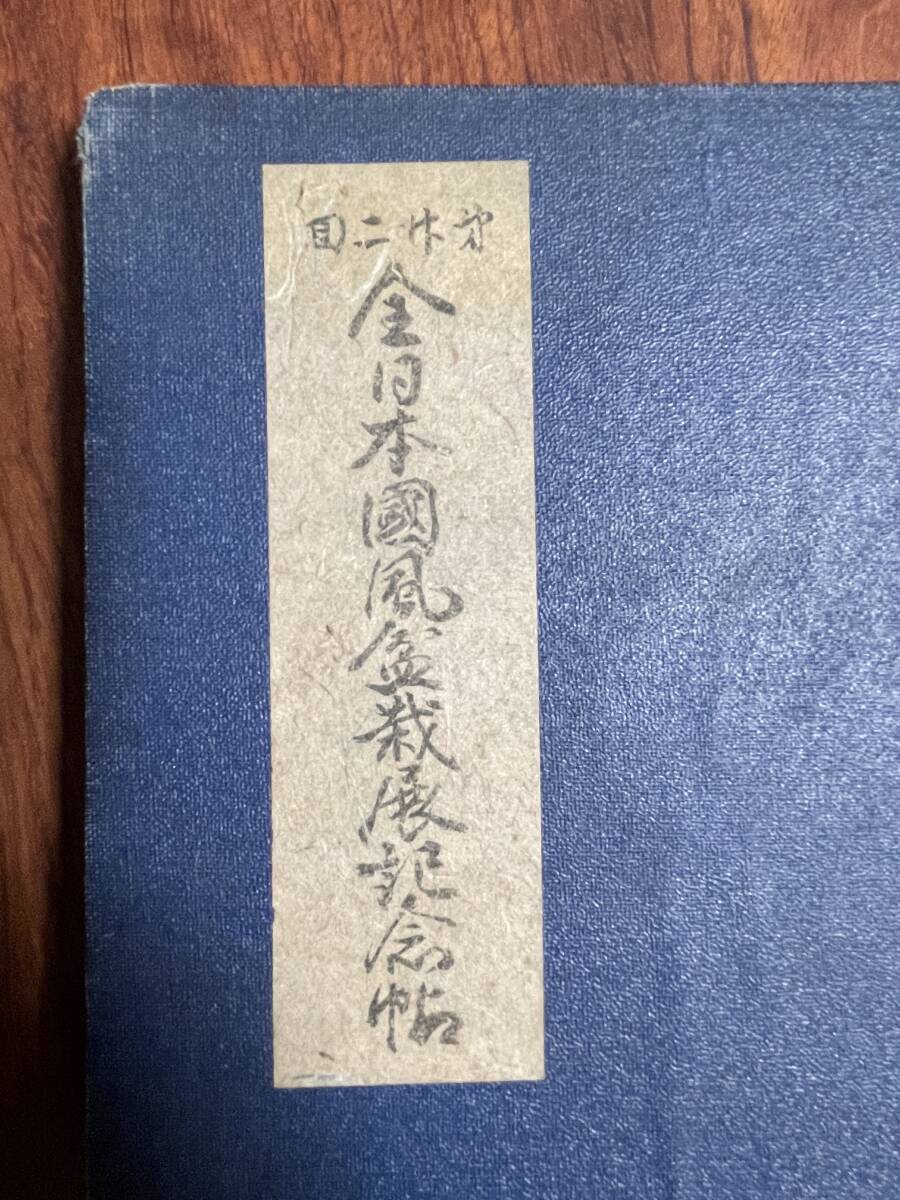 第廿二回
全日本國風盆栽展記念帖